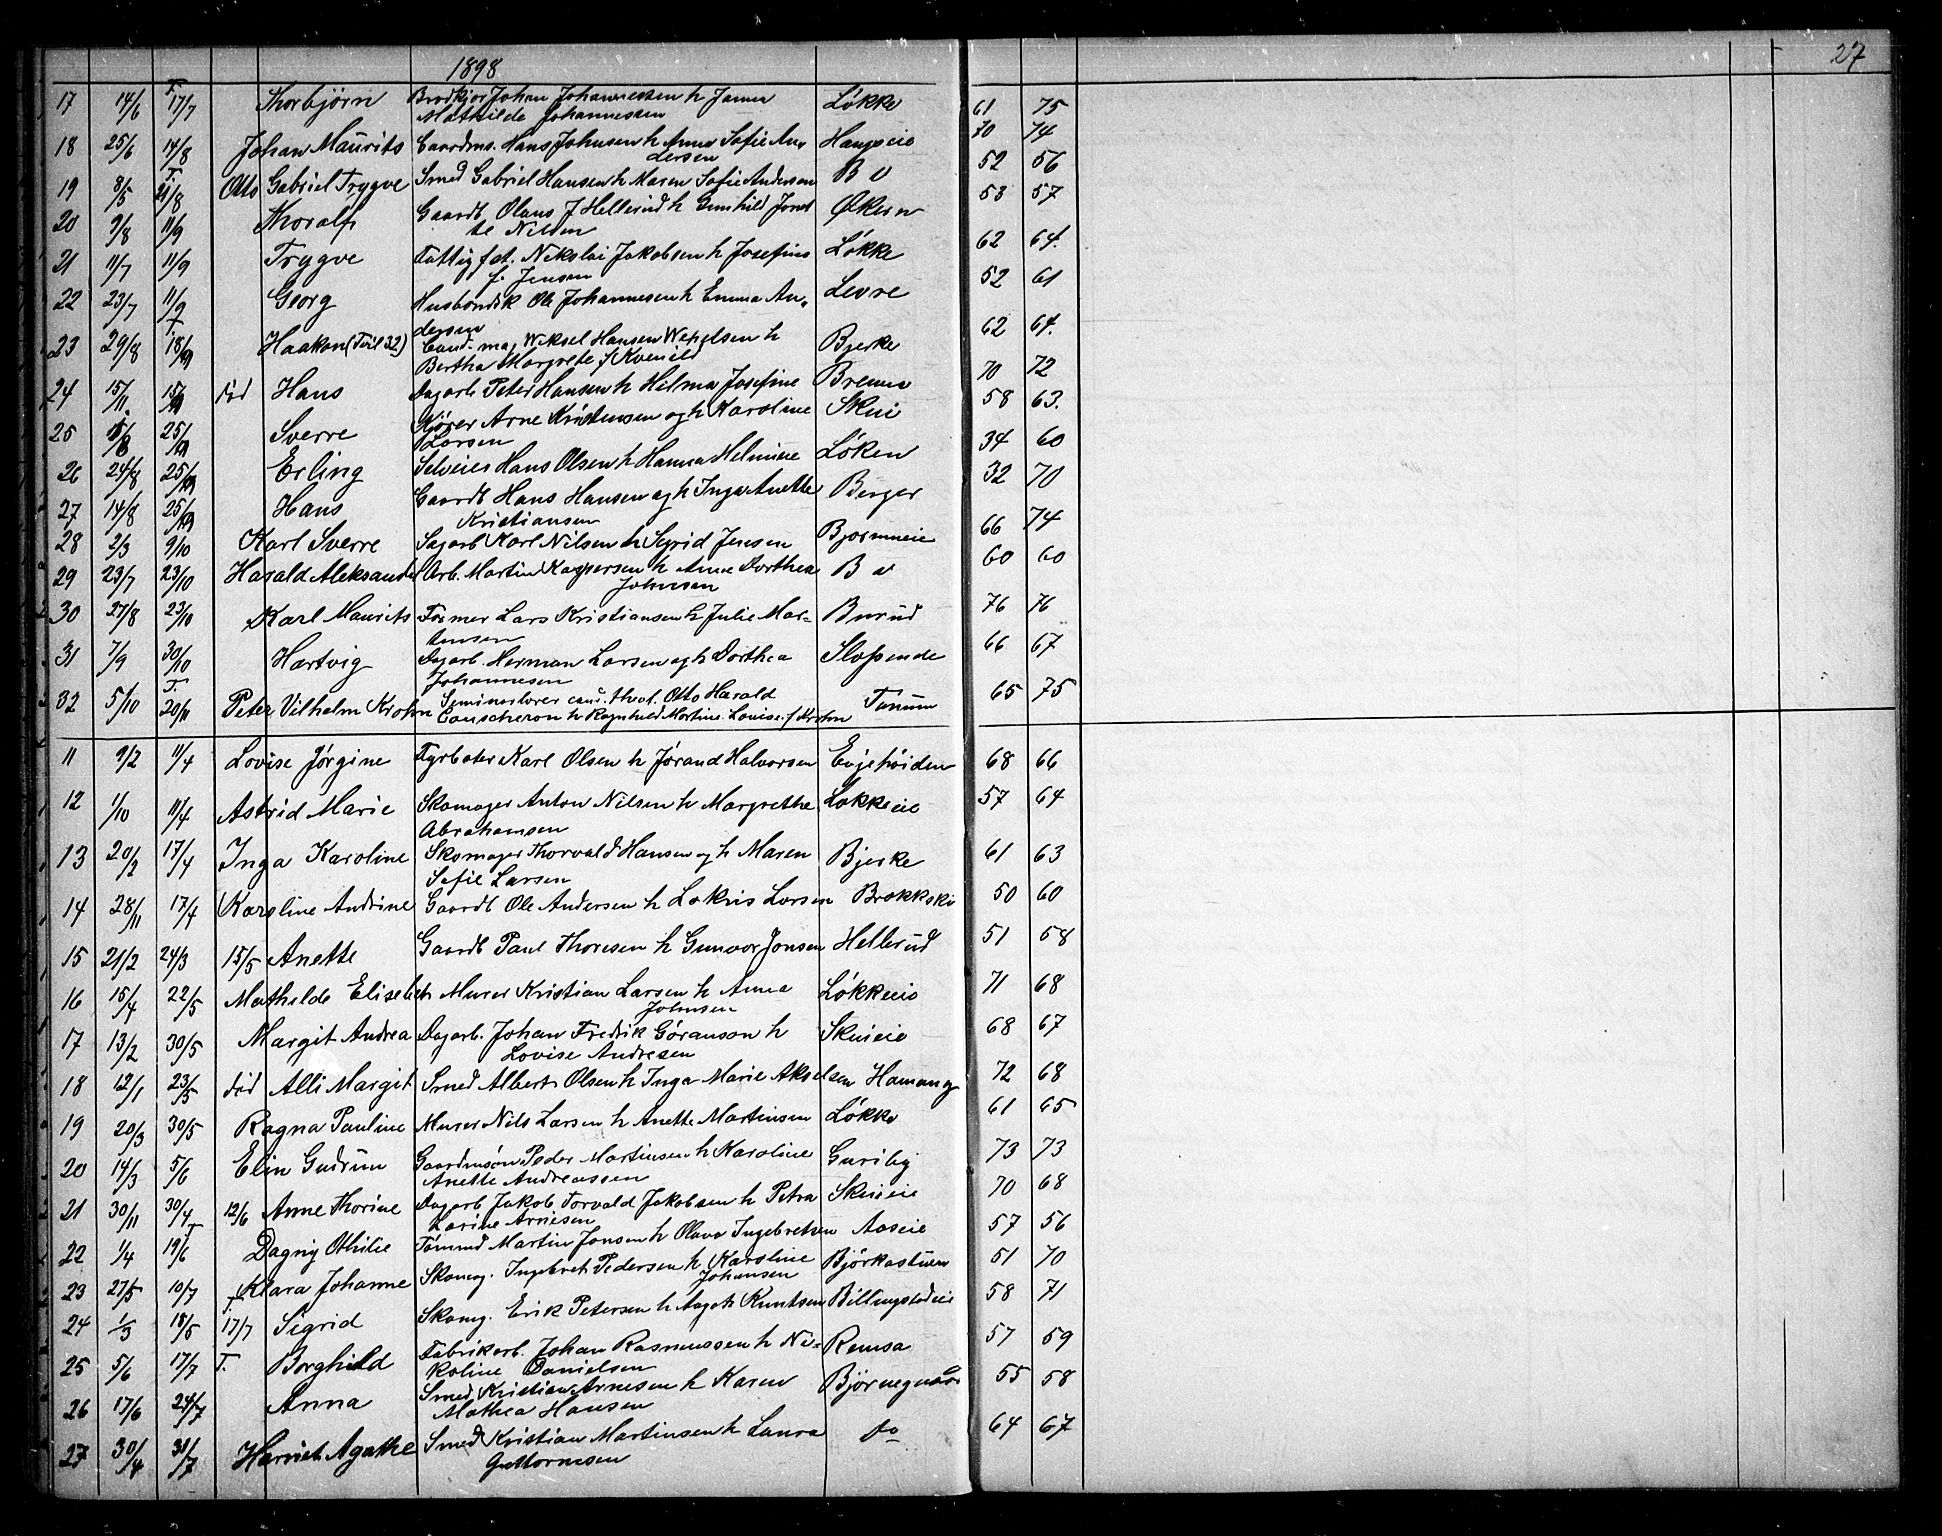 1898
27
17 14/6 T. 17/7 Thorbjørn Brødkjør Johan Johannessen h Janna Løkke 61 75
Mathilde Johannessen
18 25/6 14/8 Johan Maurits Gaardms. Hans Johnsen h Anna Sofie An- Haugseie 70 74
dersen
19 8/5 T. 21/8 Otto Gabriel Trygve Smed Gabriel Hansen h Maren Sofie Andersen B v 52 56
20 9/8 11/9 Thoralf Gaardb. Olaus J Hellerud h Gunhild Jonet Økern 53 57
te Nilsen
21 11/7 11/9 Trygve Fattigfst. Nikolai Jakobsen h Josefine Løkke 62 64.
f. Jensen
22 23/7 11/9 Georg Husbondsk Ole Johannesen h Emma An- Levre 52 61
dersen
23 29/8 T. 18/9 Haakon (Tvil 32) Cand. mag Weksel Hansen Wexelsen h Bjerke 62 64.
Bertha Margrete f Kvenild
24 15/11. 15/11 død Hans Dagarb Peter Hansen h Hilma Josefine Brenna 70 72
25 25/9 Sverre Kjører Arne Kristensen og h Karoline Skui 58 63.
Larsen
26 24/8 25/9 Erling Selveier Hans Olsen h Hanna Helmine Løken 34 60
27 14/8 25/9 Hans Gaardb Hans Hansen og h Inga Anette Berger 32 70
Kristiansen
28 2/3 9/10 Karl Sverre Sagarb Karl Nilsen h Sigrid Jensen Bjørnneie 66 74
29 23/7 23/10 Harald Aleksander Arb. Martin Kaspersen h Anne Dorthea B v 60 60
Johnsen
30 27/8 23/10 Karl Maurits Tømmer Lars Kristiansen h Julie Mar- Burud 76 76
tinsen
31 7/9 30/10 Hartvig Dagarb. Herman Larsen og h Dorthea Slopende 66 67
Johannesen
32 5/10 T. 20/11 Peter Vilhelm Krohn Seminarlærer cand. theol. Otto Harald Tanum 65 75
h Ragnhild Martine Louise f Krohn
11 9/2 11/4 Lovise Jørgine Fyrbøter Karl Olsen h Jørand Halvorsen Evjehøiden 68 66
12 1/10 11/4 Astrid Marie Skomager Anton Nilsen h Margrethe Løkkeeie 57 64
Abrahamsen
13 20/2 17/4 Inga Karoline Skomager Thorvald Hansen og h Maren Bjerke 61 63
Sofie Larsen
14 28/11 17/4 Karoline Andrine Gaardb Ole Andersen h Lokris Larsen Brokkski 50 60
15 21/2 24/3 15/5 Anette Gaardb Paul Thoresen h Gunvor Jonsen Hellerud 51 58
16 15/4 22/5 Mathilde Elisebet Murer Kristian Larsen h Anna Løkkeeie 71 68
Johnsen
17 13/2 30/5 Margit Andrea Dagarb. Johan Fredrik Gøranson h Skuieie 68 67
Lovise Andresen
18 12/1 23/5 død Alli Margit Smed Albert Olsen h Inga Marie Akselsen Hamang 72 68
19 20/3 30/5 Ragna Pauline Murer Nils Larsen h Anette Martinsen Løkke 61 65
20 14/3 5/6 Elin Gudrun Gaardmsøn Peder Martinsen h Karoline Guriby 73 73
Anette Andreassen
21 30/11 30/4 12/6 Anne Thorine Dagarb Jakob Torvald Jakobsen h Petra Skuieie 70 68
Larine Arnesen
22 1/4 T 19/6 Dagny Othilie Tømmd Martin Jonsen h Olava Ingebretsen Aaseie 57 56
23 27/5 10/7 Klara Johanne Skomg. Ingebret Pedersen h Karoline Bjørkastuen 51 70
Johansen
24 1/3 18/5 T. 17/7 Sigrid Skomg. Erik Petersen h Aagot Knutsen Billingstadeie 58 71
25 5/6 17/7 T. Borghild Fabrikarb. Johan Rasmussen h Ni- Remsa 57 59
koline Danielsen
26 17/6 24/7 Anna Smed Kristian Arnesen h Karen Bjørnegaard 55 58
Mathea Hansen
27 30/4 31/7 Harriet Agathe Smed Kristian Martinsen h Laura do 64 67
Guttormsen